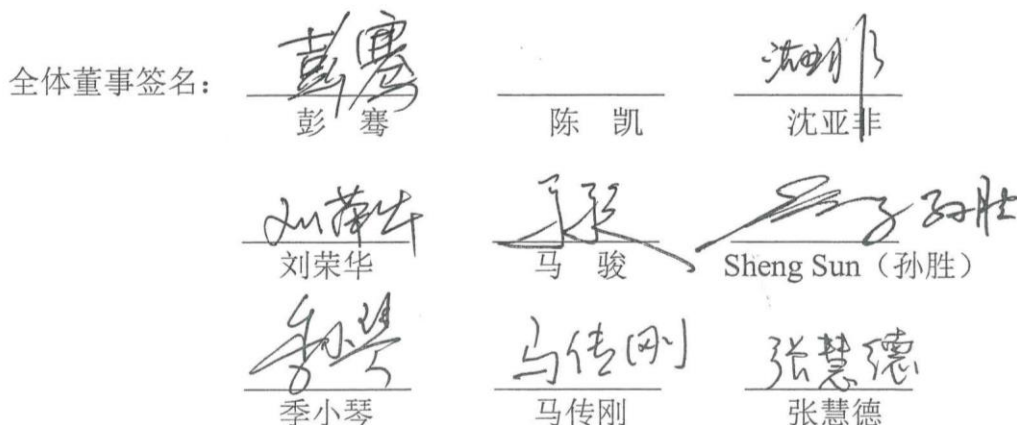 彭骞 沈亚非
全体董事签名:
彭 骞 陈 凯 沈亚非
刘荣华 马骏 孙胜
刘荣华 马 骏 Sheng Sun(孙胜)
季小琴 马传刚 张慧德
季小琴 马传刚 张慧德